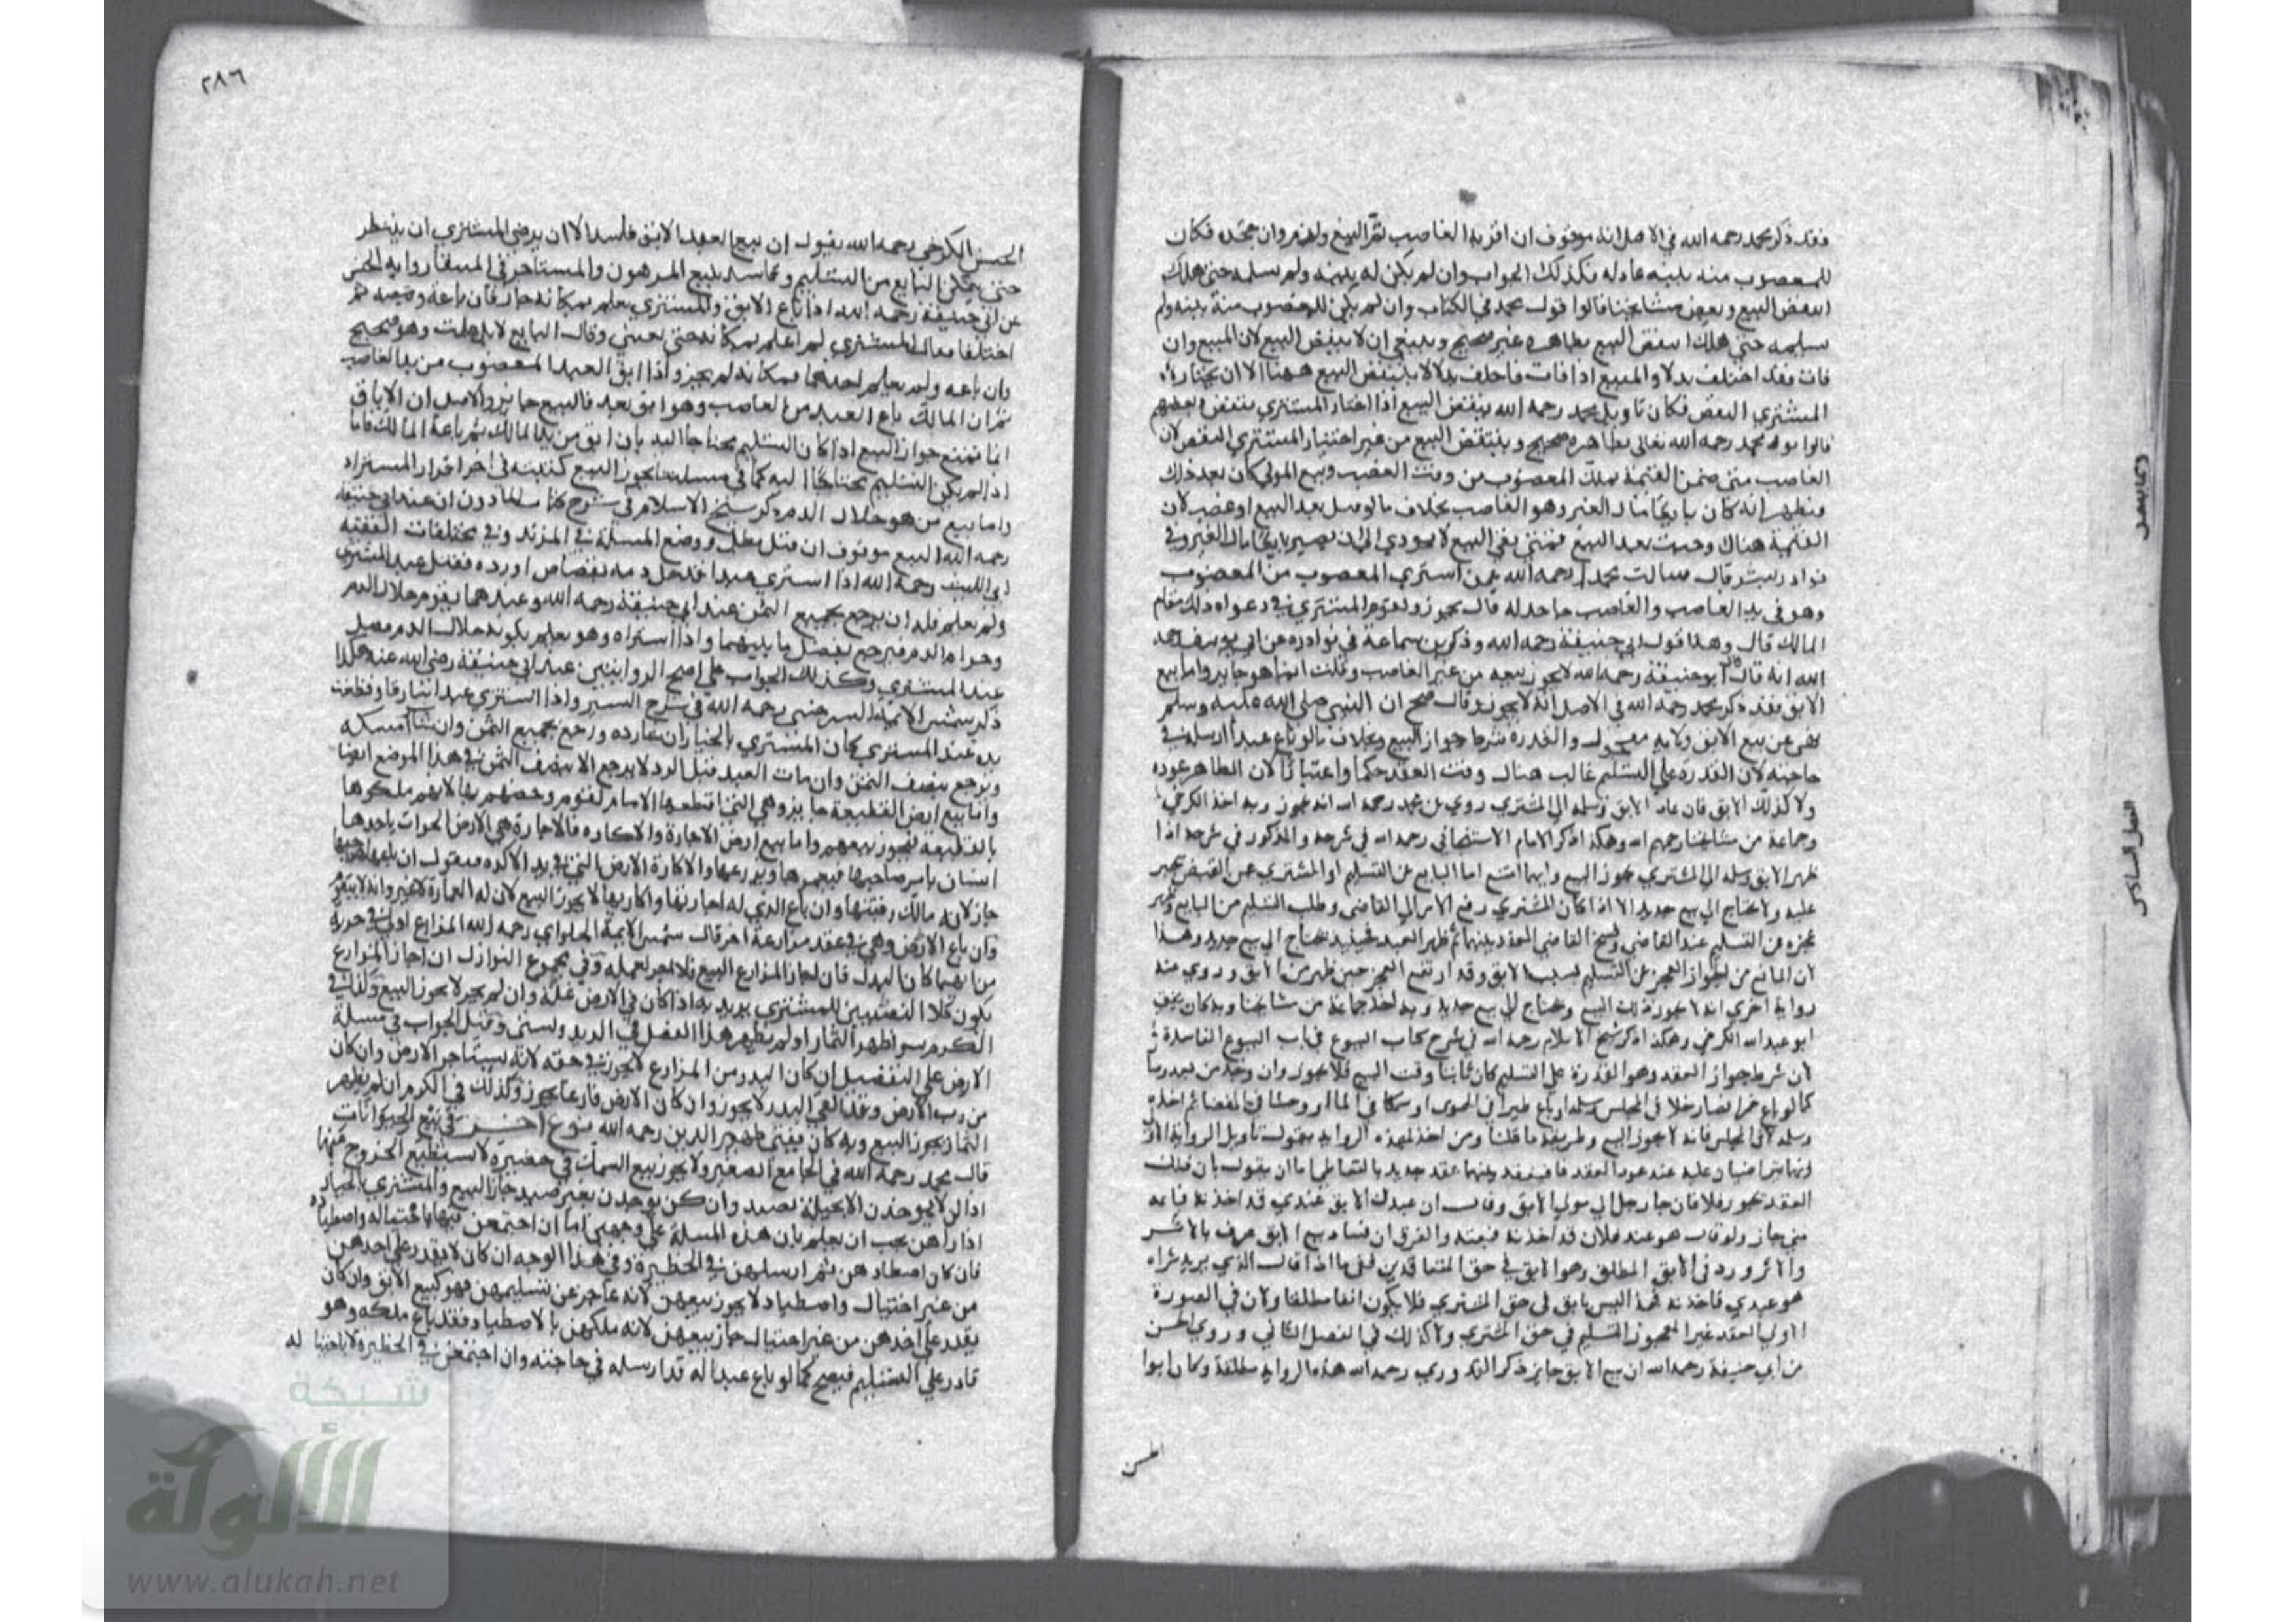 فقد ذكر محمد رحمه الله في الاصل انه موقوف ان اقر به الغاصب تقرر البيع ولزم وان جحده فكان
للمغصوب منه بينة عادلة فكذلك الجواب وان لم يكن له بينة ولم يسلمه حتى هلك
انتقض البيع وبعض مشايخنا قالوا قول محمد في الكتاب وان لم يكن للمغصوب منه بينة ولم
يسلمه حتى هلك انتقض البيع بظاهره غير صحيح وينبغي ان لا ينتقض البيع لان المبيع وان
فات فقد اخلف بدلا والمبيع اذا فات فاخلف بدلا لا ينتقض البيع ههنا الا ان يختار
المشتري النقض فكان تاويل محمد رحمه الله ينتقض البيع اذا اختار المشتري ينتقض وبعضهم
قالوا قول محمد رحمه الله تعالى بظاهره صحيح وينتقض البيع من غير اختيار المشتري النقض لان
الغاصب متى ضمن القيمة ملك المغصوب من وقت الغصب وبيع المولى كان بعد ذلك
فظهر انه كان بايعا مال الغير وهو الغاصب بخلاف ما لو قتل بعد البيع او غصب لان
القيمة هناك وجبت بعد البيع فمتى بقي البيع لا يودي الى ان يصير بايعا مال الغير وفي
نوادر بشر قال سالت محمدا رحمه الله عمن اشترى المغصوب من المغصوب
وهو في يد الغاصب والغاصب جاحد له قال يجوز ويقوم المشتري في دعواه ذلك مقام
المالك قال وهذا قول ابي حنيفة رحمه الله وذكر بن سماعة في نوادره عن ابي يوسف رحمه
الله انه قال قال ابو حنيفة رحمه الله لا يجوز بيعه من غير الغاصب وقلت انا هو جايز واما بيع
الابق فقد ذكر محمد رحمه الله في الاصل انه لا يجوز وقال صح ان النبي صلى الله عليه وسلم
نهى عن بيع الابق ولانه معجوز والقدرة شرط جواز البيع وبخلاف ما لو باع عبدا ارسله في
حاجته لان القدرة على التسليم غالب هناك وقت العقد حكما واعتبارا لان الظاهر عوده
ولا كذلك الابق فان عاد الابق وسلمه الى المشتري روي عن محمد رحمه الله انه يجوز وبه اخذ الكرخي
وجماعة من مشايخنا رحمهم الله وهكذا ذكر الامام الاسبيجابي رحمه الله في شرحه والمذكور في شرحه اذا
ظهر الابق وسلمه الى المشتري يجوز البيع وايهما امتنع اما البايع عن التسليم او المشتري عن القبض يجبر
عليه ولا يحتاج الى بيع جديد الا اذا كان المشتري رفع الامر الى القاضي وطلب التسليم من البايع وظهر
عجزه عن التسليم عند القاضي وفسخ القاضي العقد بينهما ثم ظهر العبد فحينيذ يحتاج الى بيع جديد وهذا
لان المانع من الجواز العجز عن التسليم بسبب الابق وقد ارتفع العجز حين ظهر من الابق وروي عنه
رواية اخرى انه لا يجوز ذلك البيع ويحتاج الى بيع جديد وبه اخذ جماعة من مشايخنا وبه كان يفتي
ابو عبد الله الكرخي وهكذا ذكر شيخ الاسلام رحمه الله في شرح كتاب البيوع في باب البيوع الفاسدة
لان شرط جواز العقد وهو القدرة على التسليم كان فايتا وقت البيع فلا يجوز وان وجد من بعد
كما لو باع خمرا فصار خلا في المجلس وسلمه او باع طيرا في الهوى او سمكا في الماء او وحشا في المفضا ثم اخذه
وسلمه في المجلس فانه لا يجوز البيع وطريقه ما قلنا ومن اخذ بهذه الرواية يقول تاويل الرواية الاولى
انهما تراضيا عليه عند عود العقد فانعقد بينهما عقد جديد بالتعاطي اما ان يقول بان ذلك
العقد يجوز فلا فان جا رجل الى مولى الابق وقال ان عبدك الابق عندي قد اخذته فباعه
مني جاز ولو قال هو عند فلان قد اخذته فبعنيه والفرق ان فساد بيع الابق عرف بالاثر
والاثر ورد في الابق المطلق وهو الابق في حق المتعاقدين فمتى ما اذا قال الذي يريد شراه
هو عبدي فاخذته فهذا ليس بابق في حق المشتري فلا يكون ابقا مطلقا ولان في الصورة
الاولى العقد غير معجوز التسليم في حق المشتري ولا كذلك في الفصل الثاني وروى الحسن
عن ابي حنيفة رحمه الله ان بيع الابق جايز ذكر القدوري رحمه الله هذه الرواية مطلقة وكان ابوا
الحسن
٢٨٦
الحسن الكرخي رحمه الله يقول ان بيع العبد الابق فاسد الا ان يرضى المشتري ان ينتظر
حتى يتمكن البايع من التسليم وقاسه ببيع المرهون والمستاجر في المنتقا رواية الحسن
عن ابي حنيفة رحمه الله اذا باع الابق والمشتري يعلم بمكانه جاز فان باعه وقبضه ثم
اختلفا فقال المشتري لم اعلم بمكانه حتى بعتني وقال البايع لا بل علمت وهو صحيح
وان باعه ولم يعلم احدهما بمكانه لم يجز واذا ابق العبد المغصوب من يد الغاصب
ثم ان المالك باع العبد من الغاصب وهو ابق بعد فالبيع جايز والاصل ان الاباق
انما يمنع جواز البيع اذا كان التسليم محتاجا اليه بان ابق من يد المالك ثم باعه المالك فاما
اذا لم يكن التسليم محتاجا اليه كما في مسلتنا يجوز البيع كتبته في اخر اقرار المستزاد
واما بيع من هو حلال الدم ذكر شيخ الاسلام في شرح كتاب الماذون ان عند ابي حنيفة
رحمه الله البيع موقوف ان قتل بطل ووضع المسلة في المرتد وفي مختلفات الفقيه
ابي الليث رحمه الله اذا اشترى عبدا قد حل دمه بقصاص او ردة فقتل عند المشتري
ولم يعلم فله ان يرجع بجميع الثمن عند ابي حنيفة رحمه الله وعندهما يقوم حلال الدم
وحرام الدم فيرجع بفضل ما بينهما واذا اشتراه وهو يعلم بكونه حلال الدم فقتل
عند المشتري وكذلك الجواب على اصح الروايتين عند ابي حنيفة رضي الله عنه هكذا
ذكر شمس الايمة السرخسي رحمه الله في شرح السير واذا اشترى عبدا سارقا وقطعت
يده عند المشتري كان المشتري بالخيار ان شا رده ورجع بجميع الثمن وان شا امسكه
ويرجع بنصف الثمن وان مات العبد قبل الرد لا يرجع الا بنصف الثمن في هذا الموضع ايضا
واما بيع ارض القطيعة جايز وهي التي اقطعها الامام لقوم وخصهم بها لانهم ملكوها
بالقطيعة فيجوز بيعهم واما بيع ارض الاجارة والاكارة فالاجارة هي الارض الموات ياخذها
انسان بامر صاحبها فيعمرها ويزرعها والاكارة الارض التي في يد الاكره فنقول ان باعها صاحبها
جاز لانه مالك رقبتها وان باع الذي له اجارتها واكارتها لا يجوز البيع لان له العمارة لا غير وانه لا يتقوم
وان باع الارض وهي في عقد مزارعة اخر قال شمس الايمة الحلواي رحمه الله المزارع اولى في حوزة
من ايهما كان البذر فان اجاز المزارع البيع فلا اجر لعمله وفي مجموع النوازل ان اجاز المزارع
يكون كلا النصيبين للمشتري يريد به اذا كان في الارض غلة وان لم يجز لا يجوز البيع وكذلك في
الكرم سوا ظهر الثمار او لم يظهر هذا الفصل في
الارض على التفصيل ان كان البذر من المزارع لا يجوز في حقه لانه يستاجر الارض وان كان
من رب الارض وقد القى البذر لا يجوز وان كان الارض فارغا يجوز وكذلك في الكرم ان لم يظهر
الثمار يجوز البيع وبه كان يفتي ظهير الدين رحمه الله نوع اخر في بيع الحيوانات
قال محمد رحمه الله في الجامع الصغير ولا يجوز بيع السمك في حضيرة لا يستطيع الخروج عنها
اذا كن لا يوخذن الا بحيلة تصيد وان كن يوخذن بغير صيد جاز البيع والمشتري بالخيار
اذا راهن يجب ان يعلم بان هذه المسلة على وجهين اما ان اجتمعن فيها باحتياله واصطياده
فان كان اصطادهن ثم ارسلهن في الحظيرة وفي هذا الوجه ان كان لا يقدر على اخذهن
من غير احتيال واصطياد لا يجوز بيعهن لانه عاجز عن تسليمهن فهو كبيع الابق وان كان
يقدر على اخذهن من غير احتيال جاز بيعهن لانه ملكهن بالاصطياد فقد باع ملكه وهو
قادر على التسليم فيصح كما لو باع عبدا له قد ارسله في حاجته وان اجتمعن في الحظيرة لا باحتيا له
شبكة
الألوكة
www.alukah.net